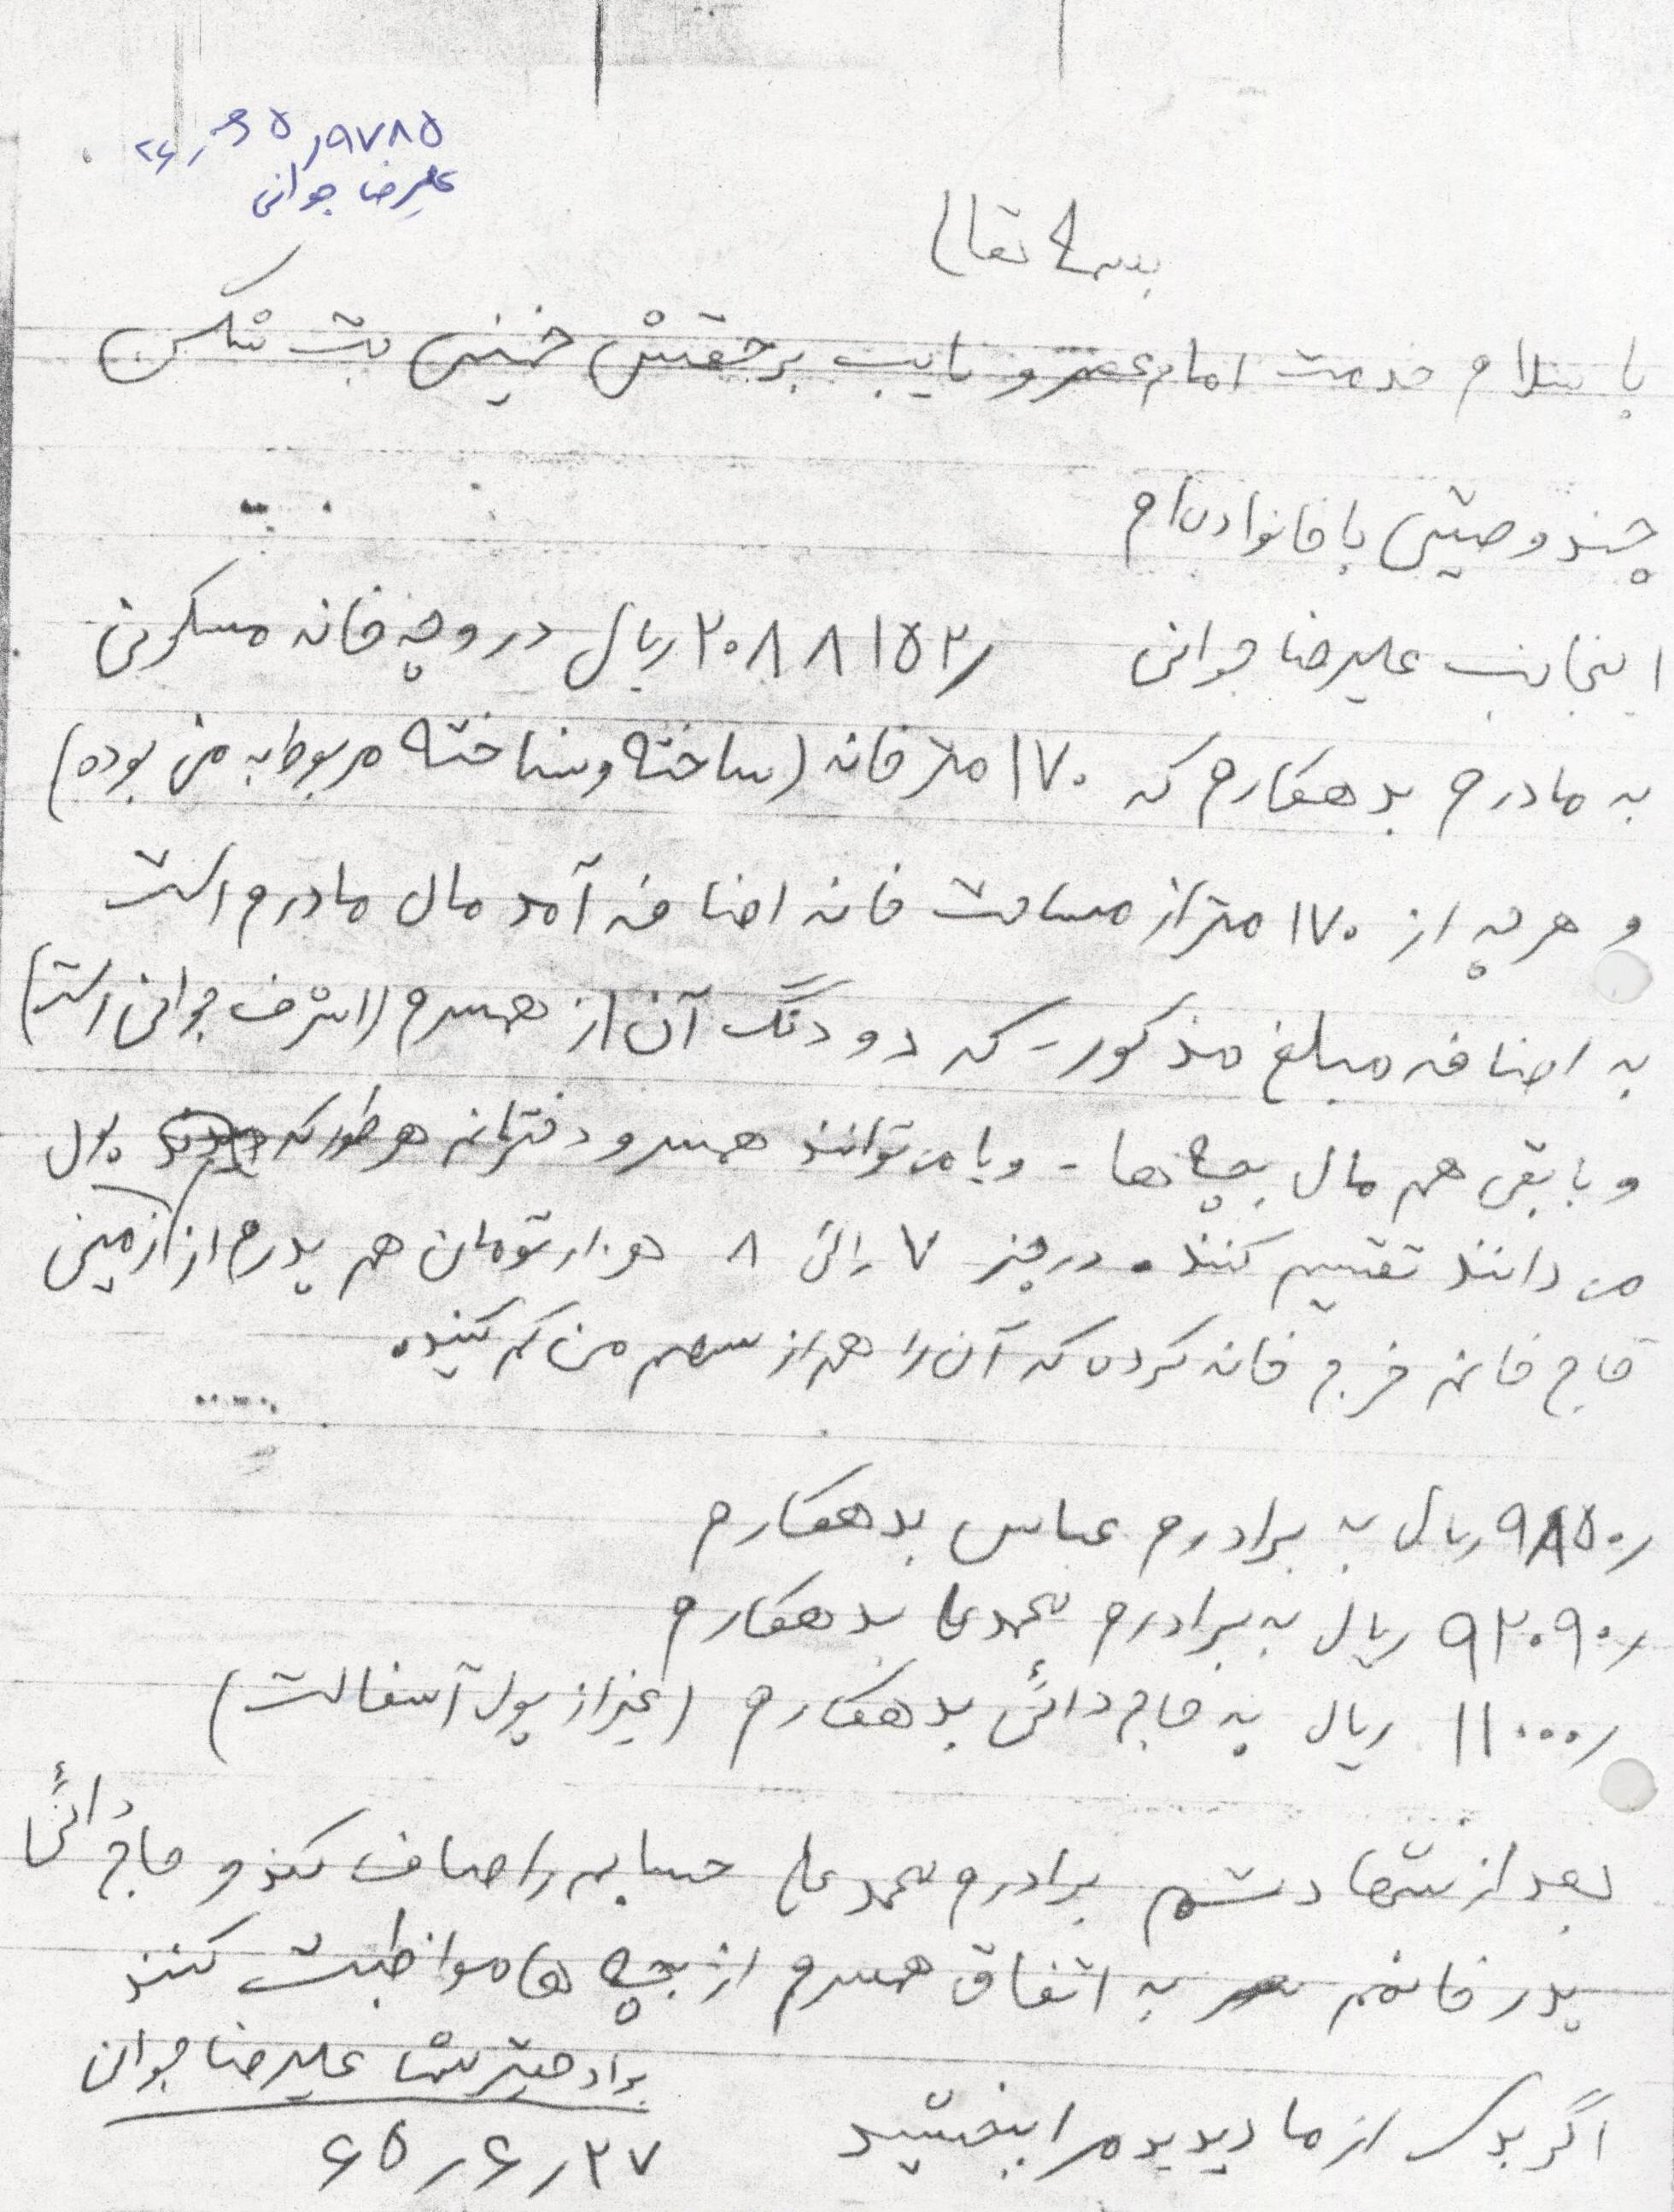 علیرضا جوانی
بسمه تعالی
با سلام خدمت امام عصر و نایب برحقش خمینی بت شکن
چند وصیتی با خانواده ام
اینجانب علیرضا جوانی ۲۰۸۸۱۵۲ ریال در وجه خانه مسکونی
به مادرم بدهکارم که ۱۷۰ متر خانه (ساخته و نساخته مربوط به من بوده)
و هر چه از ۱۷۰ متر از مساحت خانه اضافه آمد مال مادرم است
به اضافه مبلغ مذکور - که دو دنگ آن از همسرم (اشرف جوانی است)
و بابقی هم مال بچه ها - و یا می توانند همسر و دخترانم هر طور که پول
می دانند تقسیم کنند. در چیز ۷ الی ۸ هزار تومان هم پدرم از زمینی
حاج خانم خرج خانه کرده که آن را هم از سهم من کم کنید.
۹۸۵۰ ریال به برادرم عباس بدهکارم
۹۲۰۹۰ ریال به برادرم محمدعلی بدهکارم
۱۱۰۰۰ ریال به حاج دائی بدهکارم (غیر از پول آسفالت)
بعد از شهادتم برادرم محمدعلی حسابم را صاف کند و حاج دائی
پدر خانمم به اتفاق همسرم از بچه ها مواظبت کنند
اگر بدی از ما دیدید مرا ببخشید
برادر حقیر شما علیرضا جوانی
۲۷ر۶ر۶۵